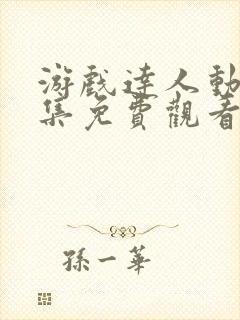 游戲達人動
集免費觀看
孫一華